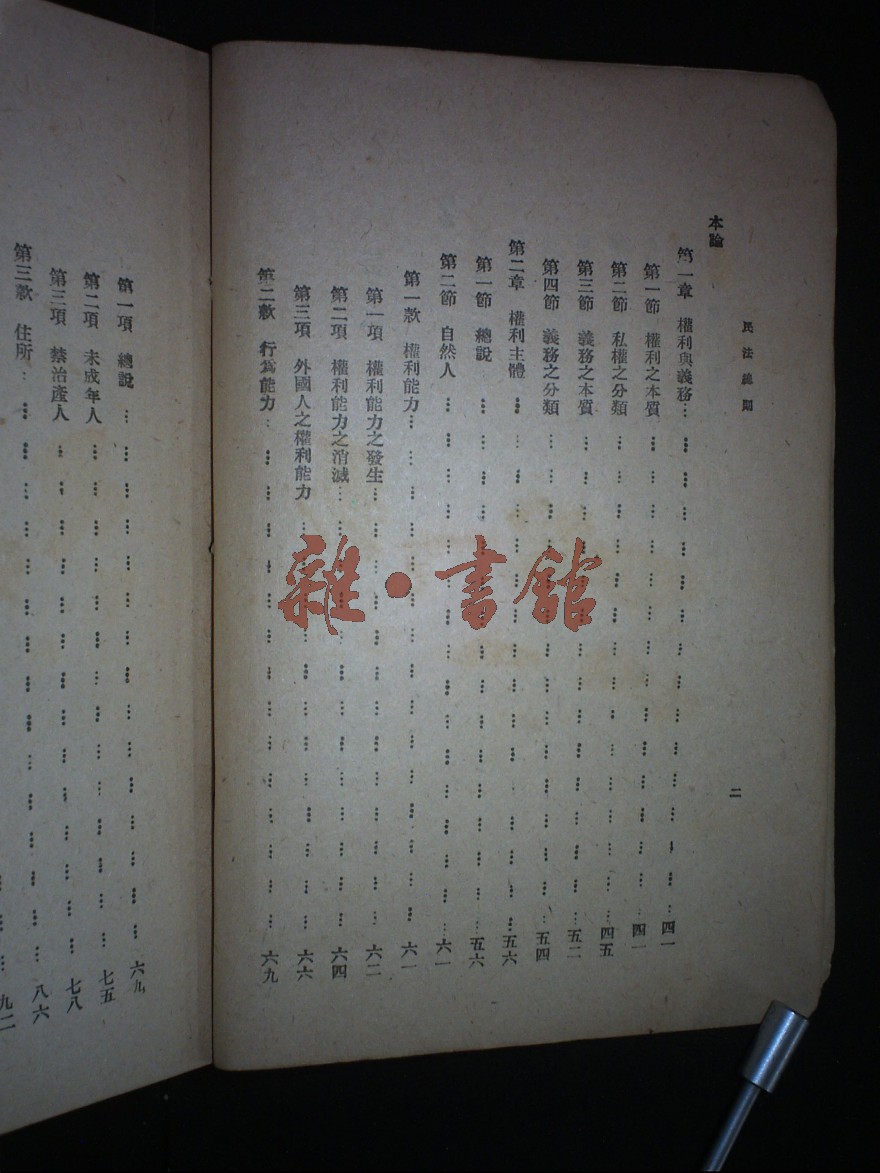 民法總則
二
本論
第一章 權利與義務……四一
第一節 權利之本質……四一
第二節 私權之分類……四五
第三節 義務之本質……五二
第四節 義務之分類……五四
第二章 權利主體……五六
第一節 總說……五六
第二節 自然人……六一
第一款 權利能力……六一
第一項 權利能力之發生……六二
第二項 權利能力之消滅……六四
第三項 外國人之權利能力……六六
第二款 行爲能力……六九
第一項 總說……六九
第二項 未成年人……七五
第三項 禁治產人……七八
第三款 住所……八六
……九二
雜·書館